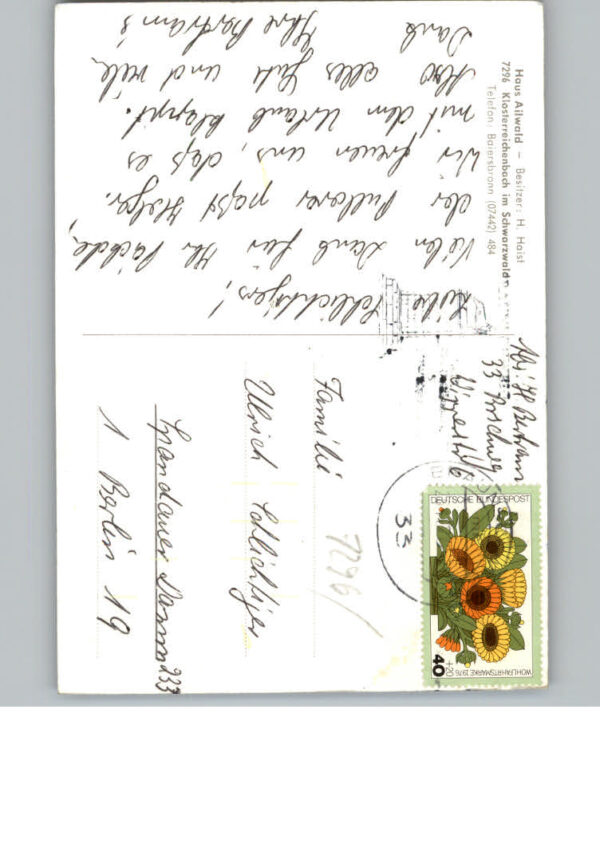 Haus Ailwald — Besitzer: H. Haist
7296 Klosterreichenbach im Schwarzwald
Telefon: Baiersbronn (07442) 484
Liebe Schlichtijers!
Vielen Dank für Ihr Päckchen,
der Pullover paßt Helga.
Wir freuen uns, daß es
mit dem Urlaub klappt.
Also alles Gute und viele
Dank
Ihre Bertrams
Abs: H Bertram
33 Brschwg
DEUTSCHE BUNDESPOST
WOHLFAHRTSMARKE 1976
40
+20
33
Familie
Ulrich Schlichtijer
Spandauer Damm 233
1 Berlin 19
7296/